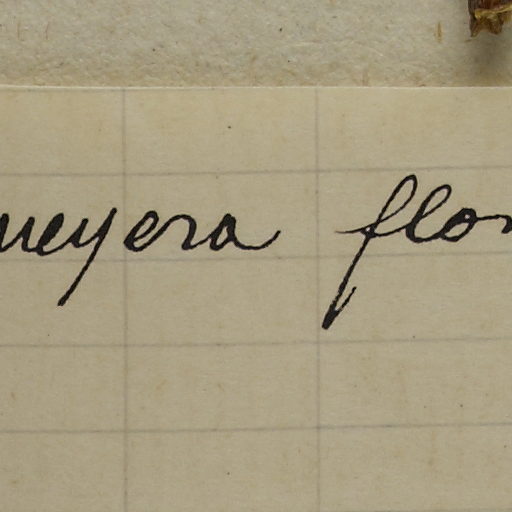 ueyera flor